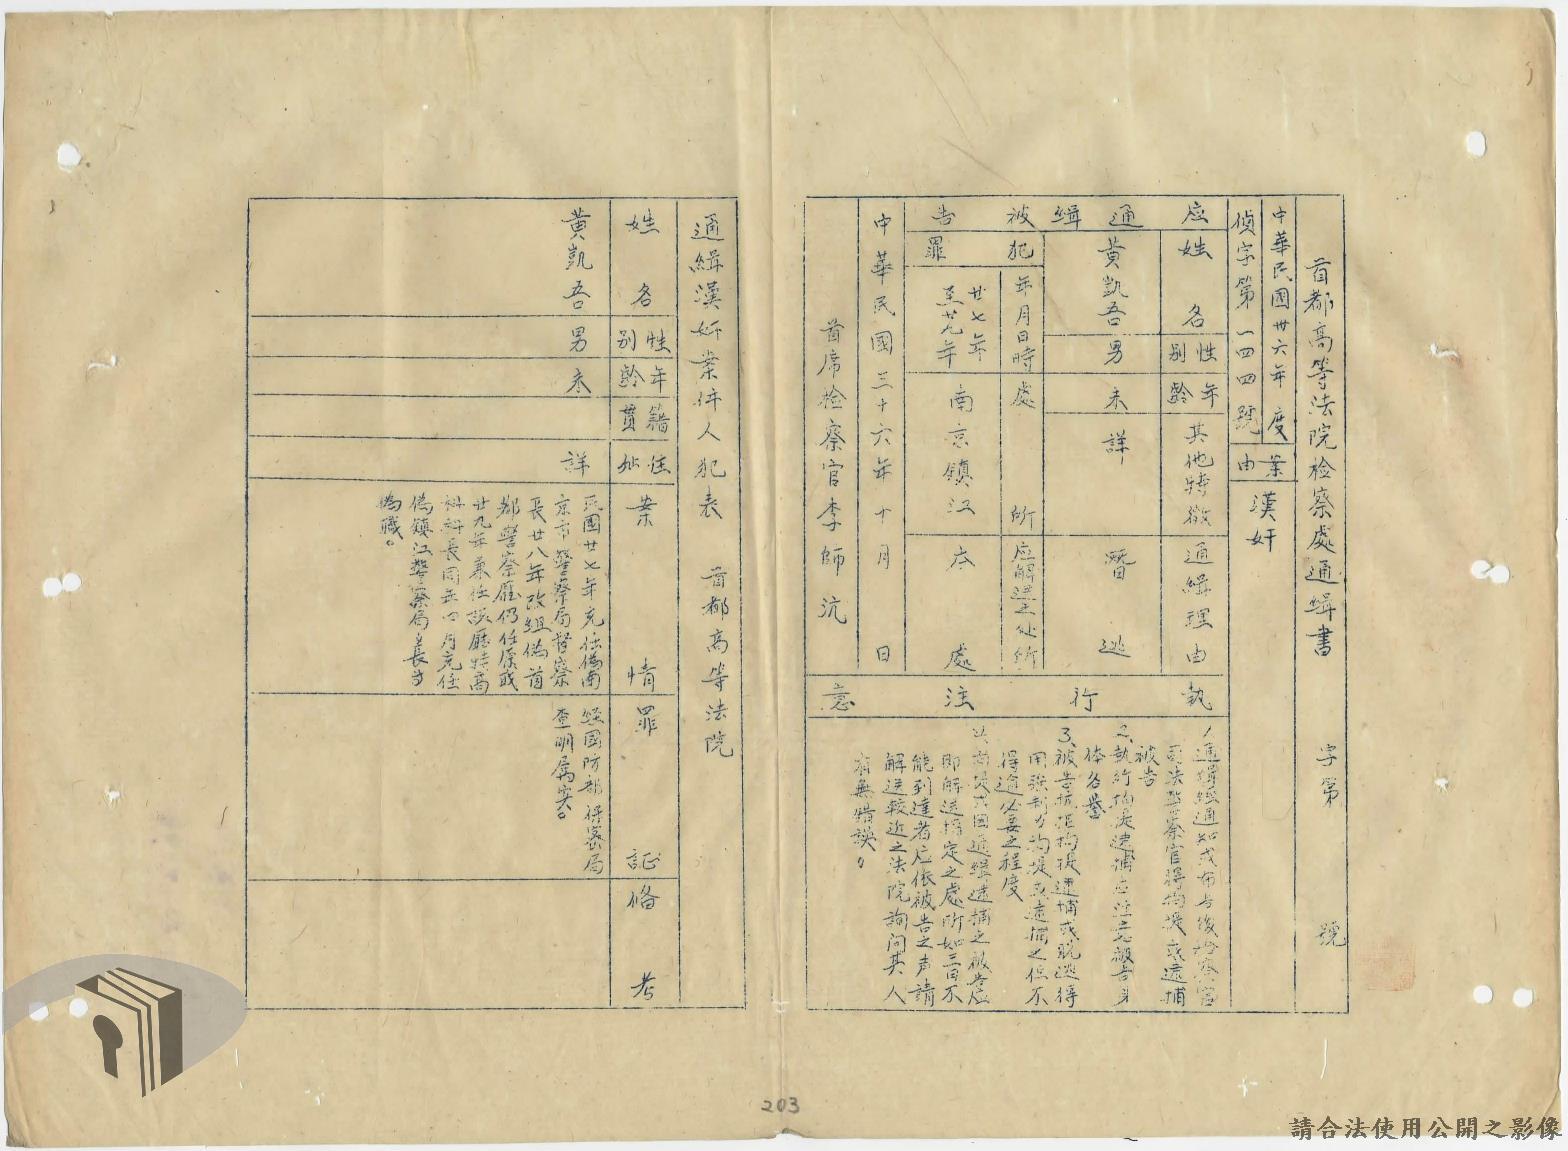 首都高等法院检察處通緝書　字第　號
中華民國卅六年度
偵字第一四四號
案由
漢奸
应通緝被告
姓名
性别
年齡
其他特徵
通緝理由
黃凱吾
男
未詳
潛逃
犯罪
年月日時
處所
应解送之处所
廿七年
至廿九年
南京鎮江
本處
中華民國三十六年十月　日
首席检察官李師沆
執行注意
1、通緝經通知或布告後检察官
司法警察官得拘提或逮捕
被告
2、執行拘提逮捕应注意被告身
体名誉
3、被告抗拒拘提逮捕或脱逃得
用强制力拘提或逮捕之但不
得逾必要之程度
拘提或因通緝逮捕之被告应
即解送指定之處所如三日不
能到達者应依被告之声請
解送較近之法院詢问其人
有無错误。
通緝漢奸業件人犯表　首都高等法院
姓名
性别
年齡
籍貫
住址
案情
罪証
俻考
黃凱吾
男
未
詳
民國廿七年充任偽南
京市警察局督察
長廿八年改組偽首
都警察廳仍任原職
廿九年兼任該廳特高
科科長同年四月充任
偽鎮江警察局局長等
偽職。
經國防部保密局
查明属实。
203
請合法使用公開之影像